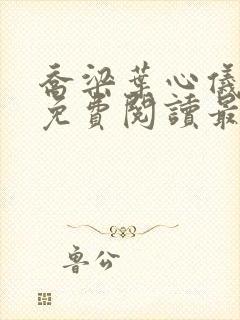 喬梁葉心儀
免費閱讀最
魯公